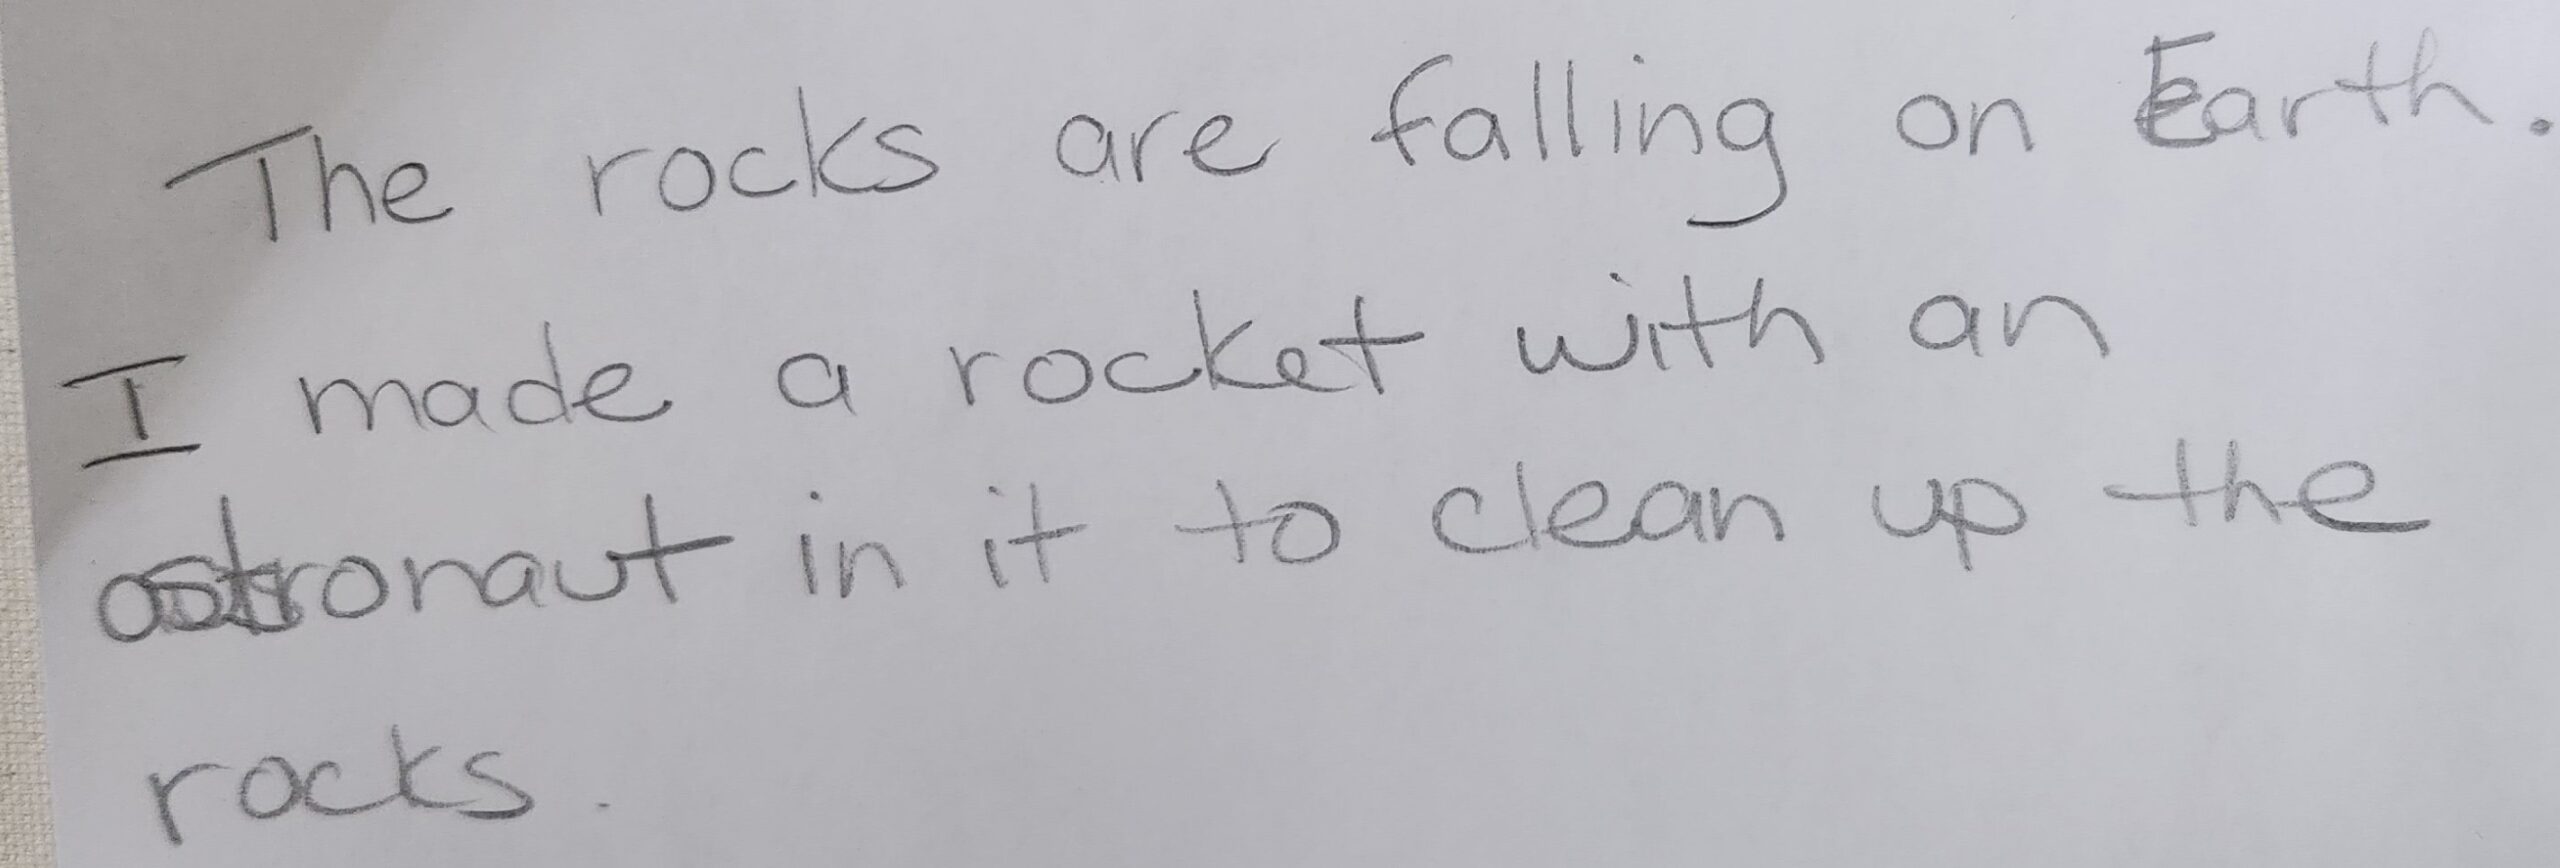 The rocks are falling on Earth.
I made a rocket with an
astronaut in it to clean up the
rocks.